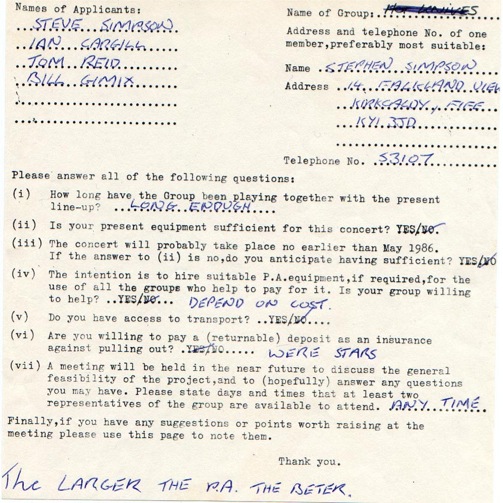 Names of Applicants:
STEVE SIMPSON
IAN CARGILL
TOM REID
BILL GIMIX
Name of Group: HOT KNIVES
Address and telephone No. of one
member,preferably most suitable:
Name STEPHEN SIMPSON
Address 14, FALKLAND VIEW
KIRKCALDY, FIFE
KY1 3JD
Telephone No. 53107
Please answer all of the following questions:
(i) How long have the Group been playing together with the present
line-up? LONG ENOUGH
(ii) Is your present equipment sufficient for this concert? YES/NO.
(iii) The concert will probably take place no earlier than May 1986.
If the answer to (ii) is no,do you anticate having sufficient? YES/NO
(iv) The intention is to hire suitable P.A.equipment,if required,for the
use of all the groups who help to pay for it. Is your group willing
to help? ..YES/NO... DEPEND ON COST.
(v) Do you have access to transport? ..YES/NO...
(vi) Are you willing to pay a (returnable) deposit as an insurance
against pulling out? .YES/NO..... WERE STARS
(vii) A meeting will be held in the near future to discuss the general
feasibility of the project,and to (hopefully) answer any questions
you may have. Please state days and times that at least two
representatives of the group are available to attend. ANY TIME
Finally,if you have any suggestions or points worth raising at the
meeting please use this page to note them.
Thank you.
The LARGER THE P.A. THE BETER.